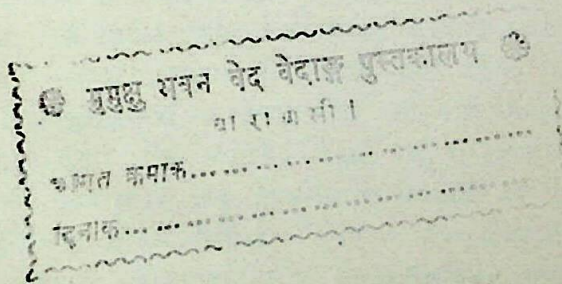 मुमुक्षु भवन वेद वेदाङ्ग पुस्तकालय
वाराणसी ।
आगत क्रमांक....................................
दिनांक....................................